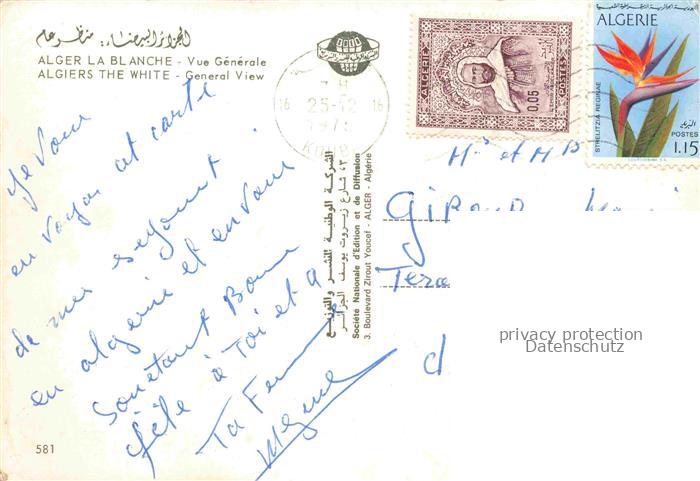 الجزائر البيضاء: منظر عام
ALGER LA BLANCHE - Vue Générale
ALGIERS THE WHITE - General View
Je vous
en voyai cet carte
de mes sejount
en algerie et en vous
souetant Bonne
fête à Toi et a
Ta Femme
581
7 H
16 25-12 16
197
KOUBA
الشركة الوطنية للنشر والتوزيع
٣، شارع زيروت يوسف الجزائر
Société Nationale d'Edition et de Diffusion
3. Boulevard Zirout Youcef - ALGER - Algérie
ALGERIE
POSTES
0,05
ALGERIE
STRELITZIA REGINAE
POSTES
1.15
Mr et Mme
GIRAUD
Terra
d
privacy protection
Datenschutz